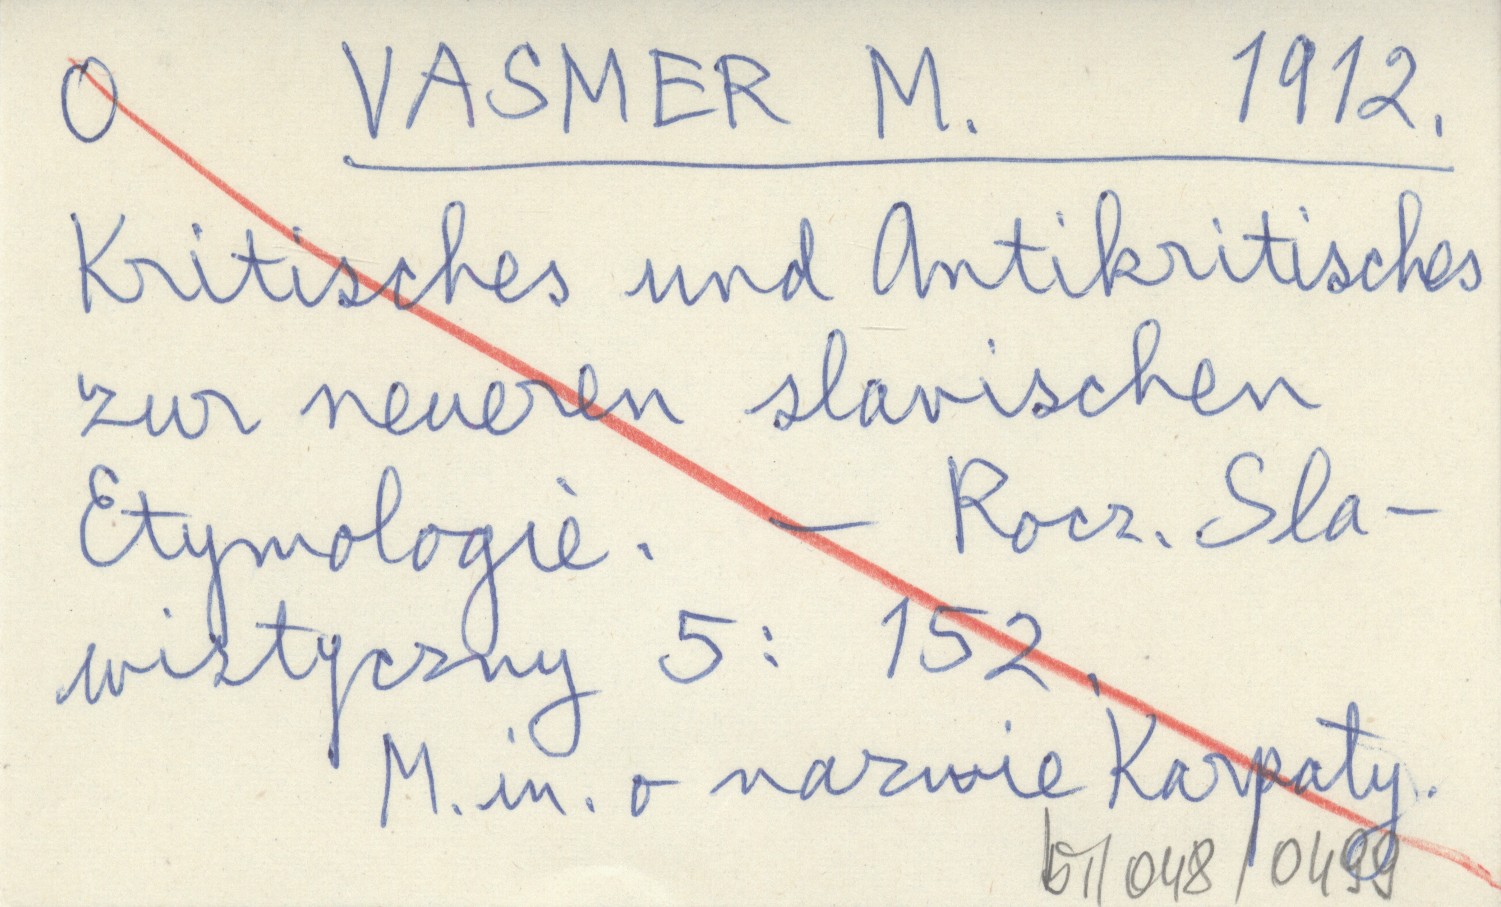 O VASMER M. 1912.
Kritisches und Antikritisches
zur neueren slavischen
Etymologie. — Rocz. Sla-
wistyczny 5: 152.
M. in. o nazwie Karpaty.
b11/048/0499